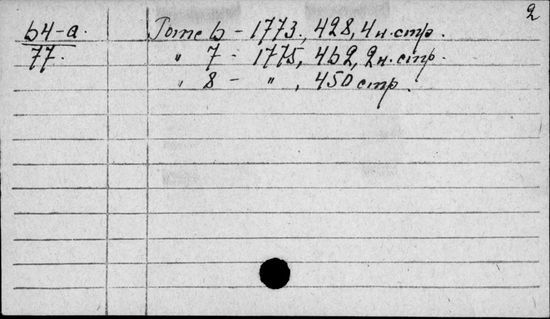 2
64-а. Tome 6 - 1773, 428, 4 н. стр.
77. " 7 - 1775, 462, 2 н. стр.
" 8 - ", 450 стр.